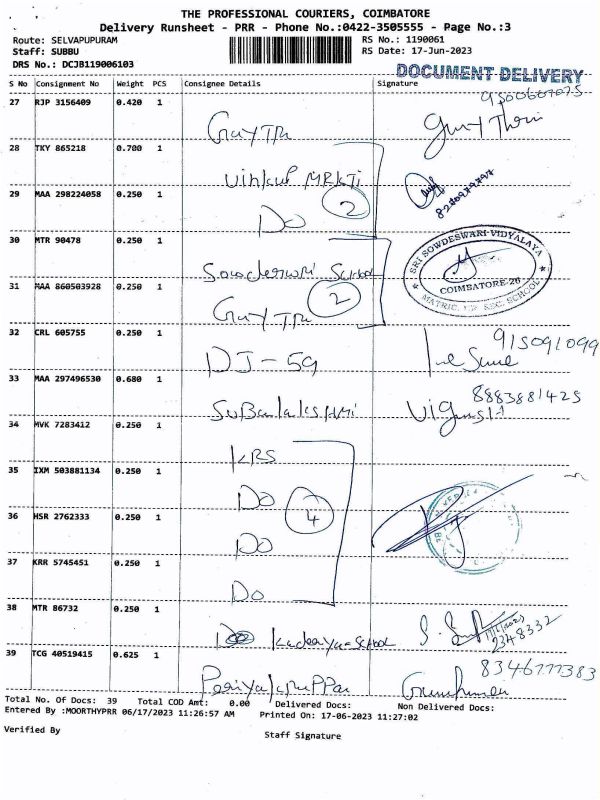 THE PROFESSIONAL COURIERS, COIMBATORE
Delivery Runsheet - PRR - Phone No.:0422-3505555 - Page No.:3
Route: SELVAPUPURAM RS No.: 1190061
Staff: SUBBU RS Date: 17-Jun-2023
DRS No.: DCJB119006103
DOCUMENT DELIVERY
S No Consignment No Weight PCS Consignee Details Signature
9500607075
27 RJP 3156409 0.420 1
28 TKY 865218 0.700 1
MRKTI
8270979797
29 MAA 298224058 0.250 1
DO 2
30 MTR 90478 0.250 1
SRI SOWDESWARI VIDYALAYA
COIMBATORE-26
MATRIC. HR. SEC. SCHOOL
School
31 MAA 860503928 0.250 1
2
32 CRL 605755 0.250 1
915091099
DJ-59
33 MAA 297496530 0.680 1
8883881425
34 MVK 7283412 0.250 1
KRS
35 IXM 503881134 0.250 1
DO
4
36 HSR 2762333 0.250 1
DO
37 KRR 5745451 0.250 1
DO
38 MTR 86732 0.250 1
School
2348332
39 TCG 40519415 0.625 1
8346777383
Total No. Of Docs: 39 Total COD Amt: 0.00 Delivered Docs: Non Delivered Docs:
Entered By :MOORTHYPRR 06/17/2023 11:26:57 AM Printed On: 17-06-2023 11:27:02
Verified By Staff Signature